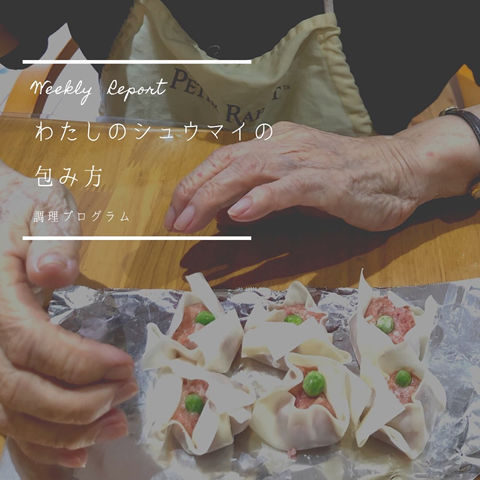 Weekly Report
わたしのシュウマイの
包み方
調理プログラム
PETER RABBIT™